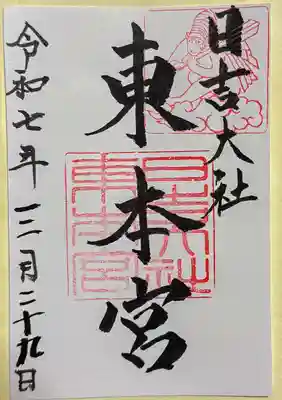 日吉大社
東本宮
日吉大社東本宮
令和七年十二月二十九日